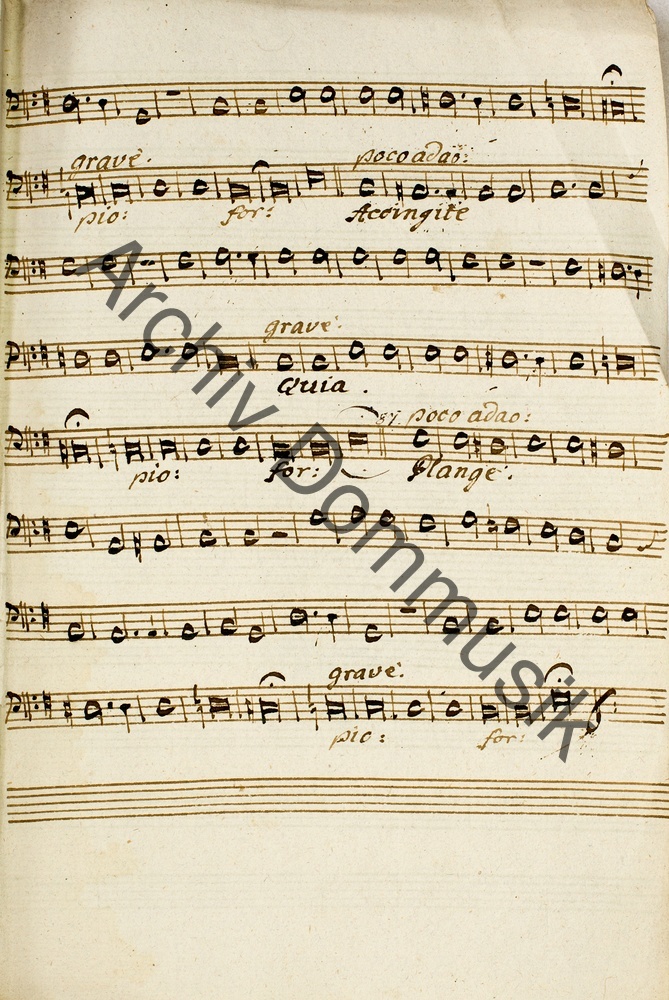 grave. poco adao:
pio: for: Accingite
grave.
Quia .
poco adao:
pio: for: Plange.
grave.
pio: for:
Archiv Dommusik